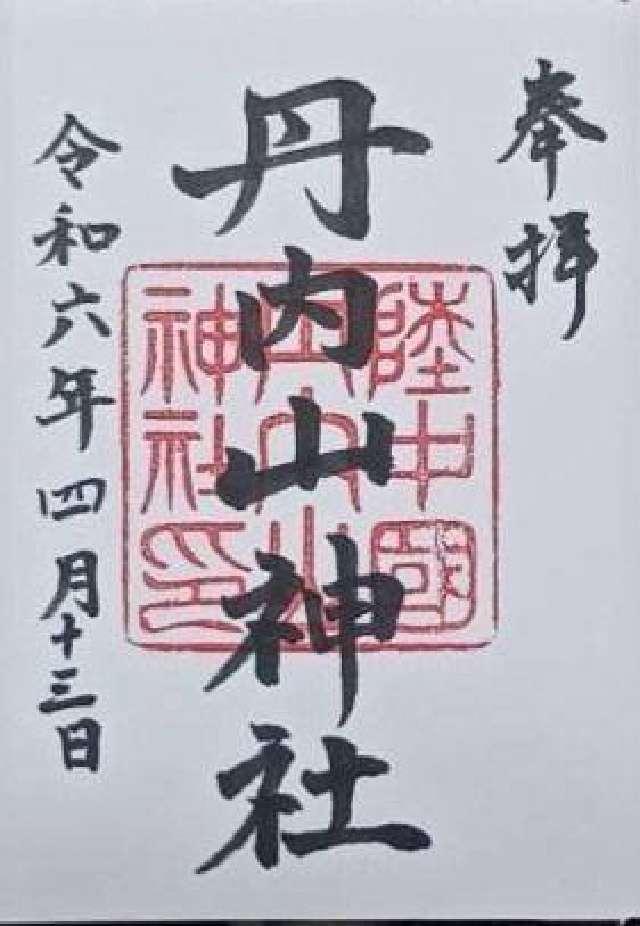 奉拝
丹内山神社
陸中國
丹内山
神社印
令和六年四月十三日